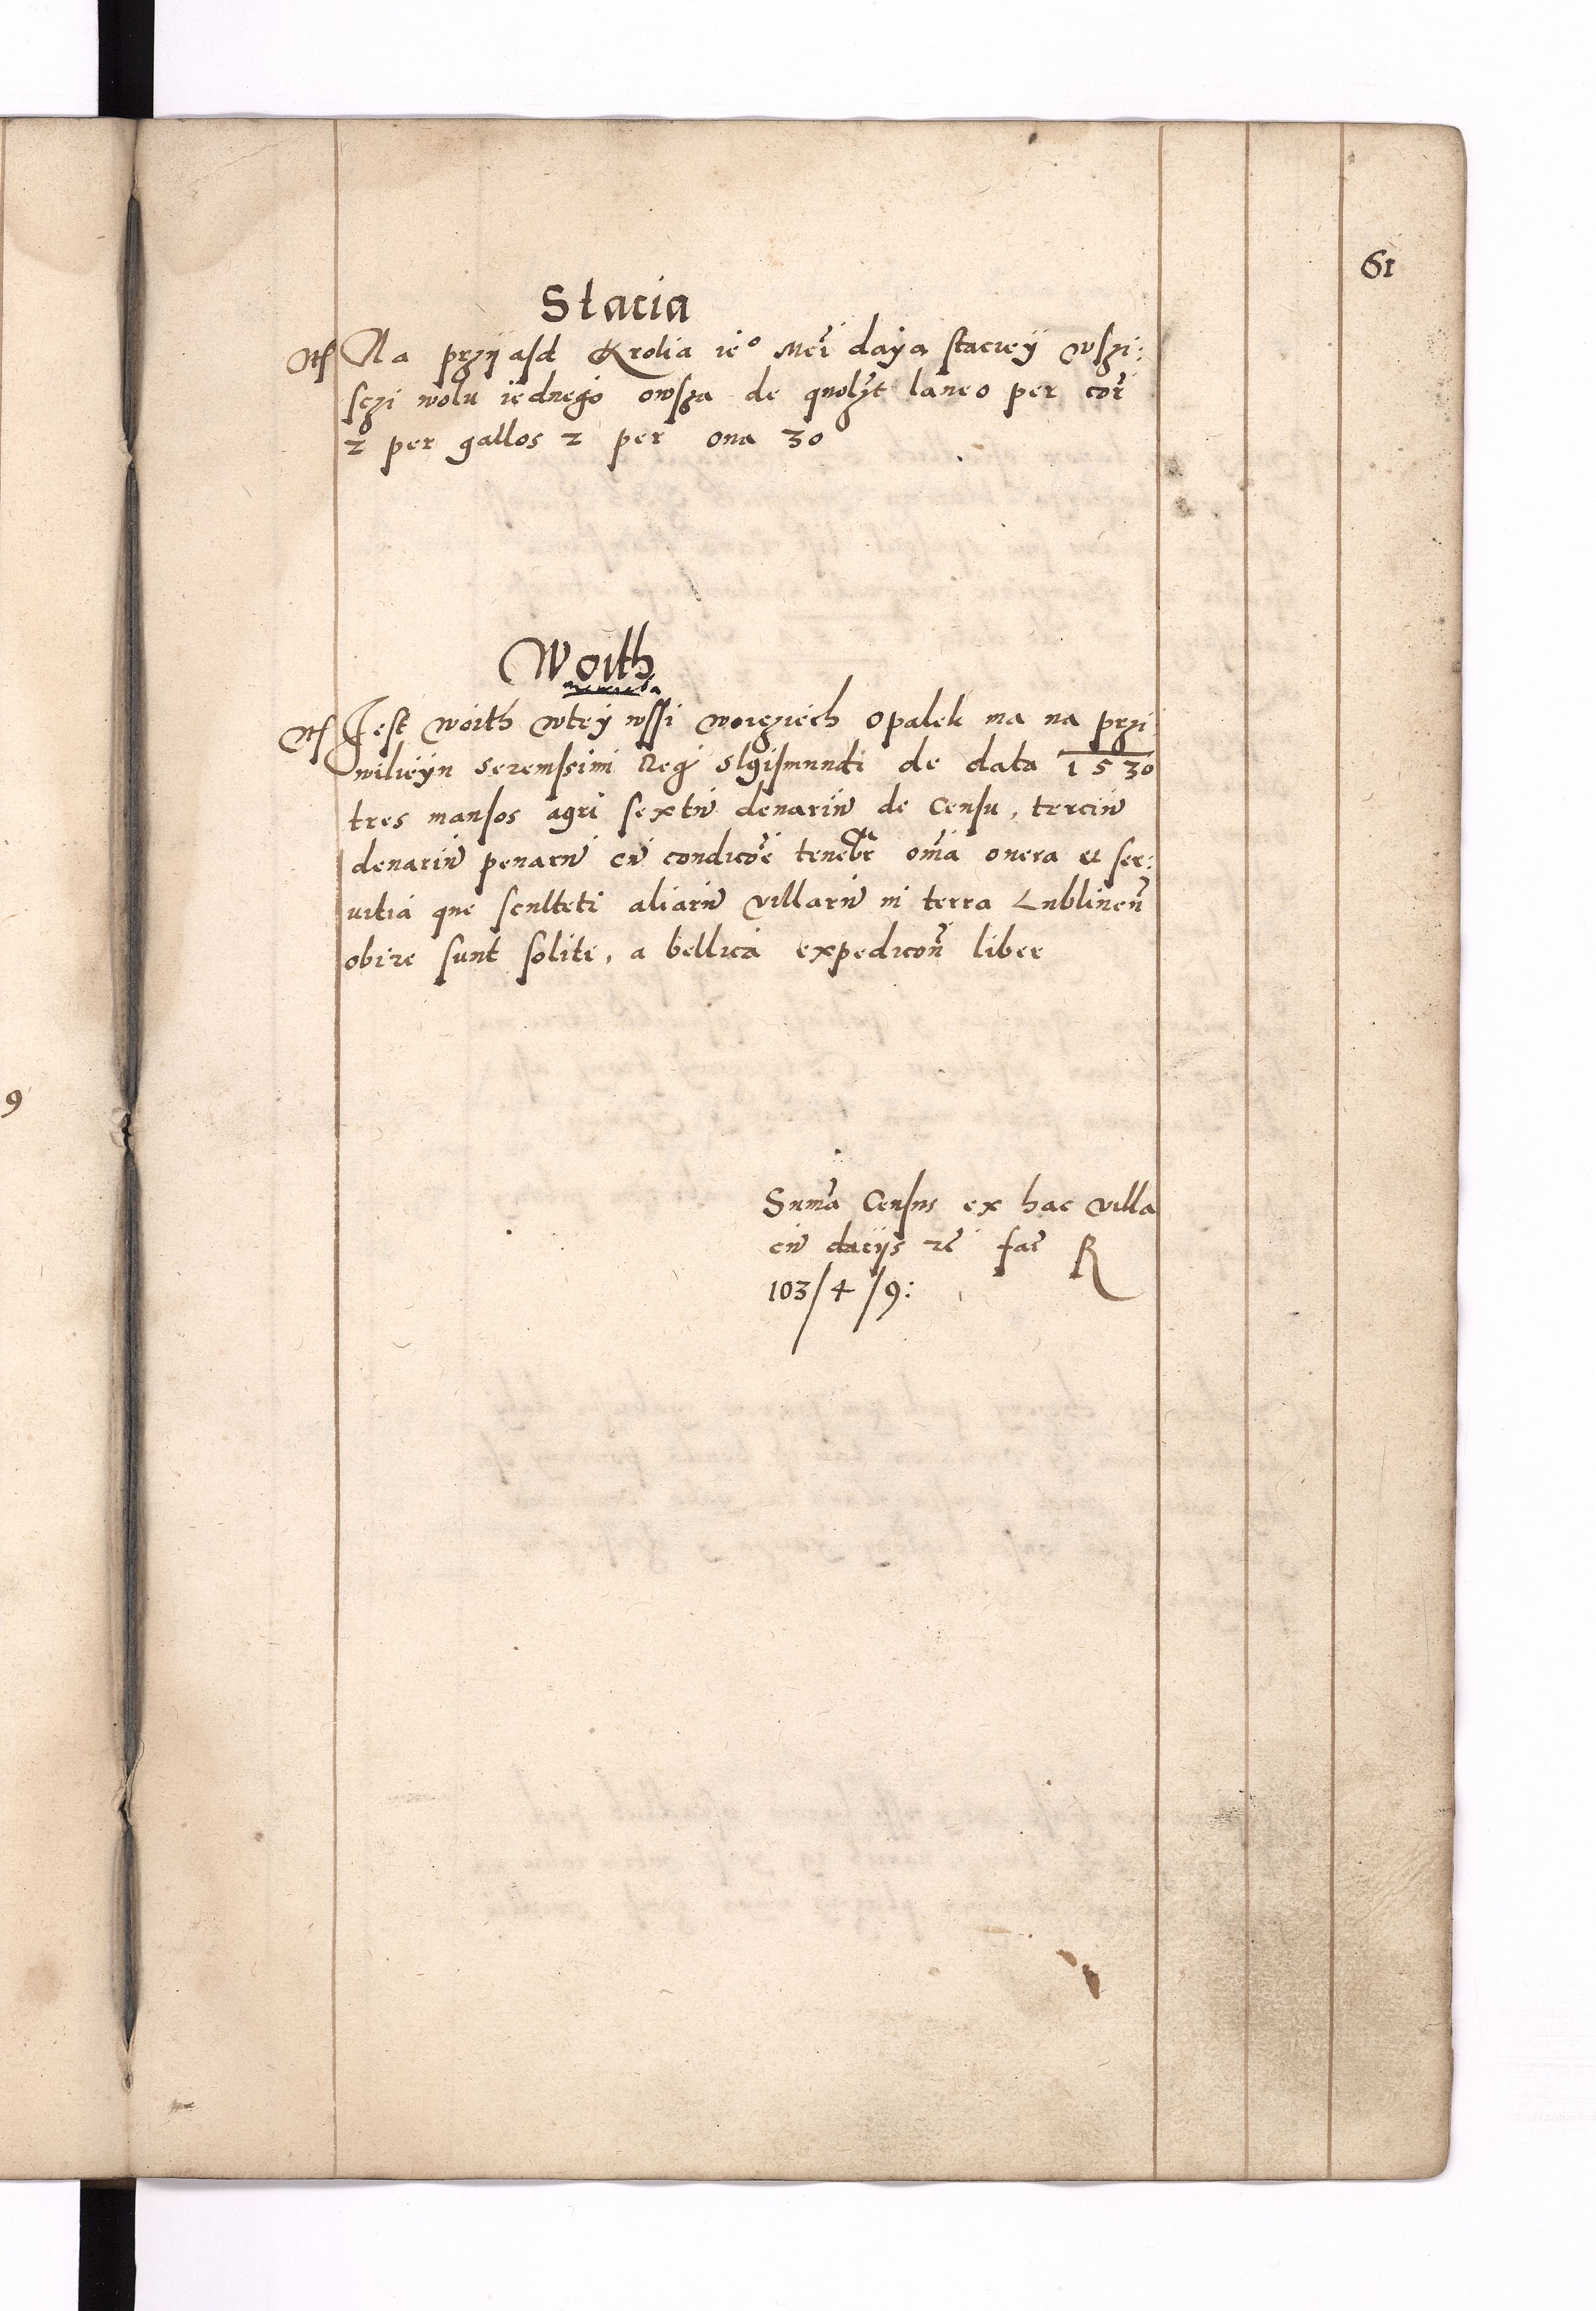 61
Stacia
Na przijasd Krolia ie° Mci daya staciey wszi:
sczi wolu iednego owsza de quolzt laneo per cor
2 per gallos 2 per ova 30
Woith
Jest woith wtey wssi woicziech opalek ma na przi
wilieyu serenissimi Reg Sigismundi de data 1530
tres mansos agri sextu denariu de Censu, terciu
denariu penaru cu condicoe tenebr oma onera et ser:
vitia que sculteti aliaru villaru in terra Lublinen
obire sunt soliti, a bellica expedicon liber
Suma Census ex hac villa
cu daciis rc fac R
103/4/9:
9